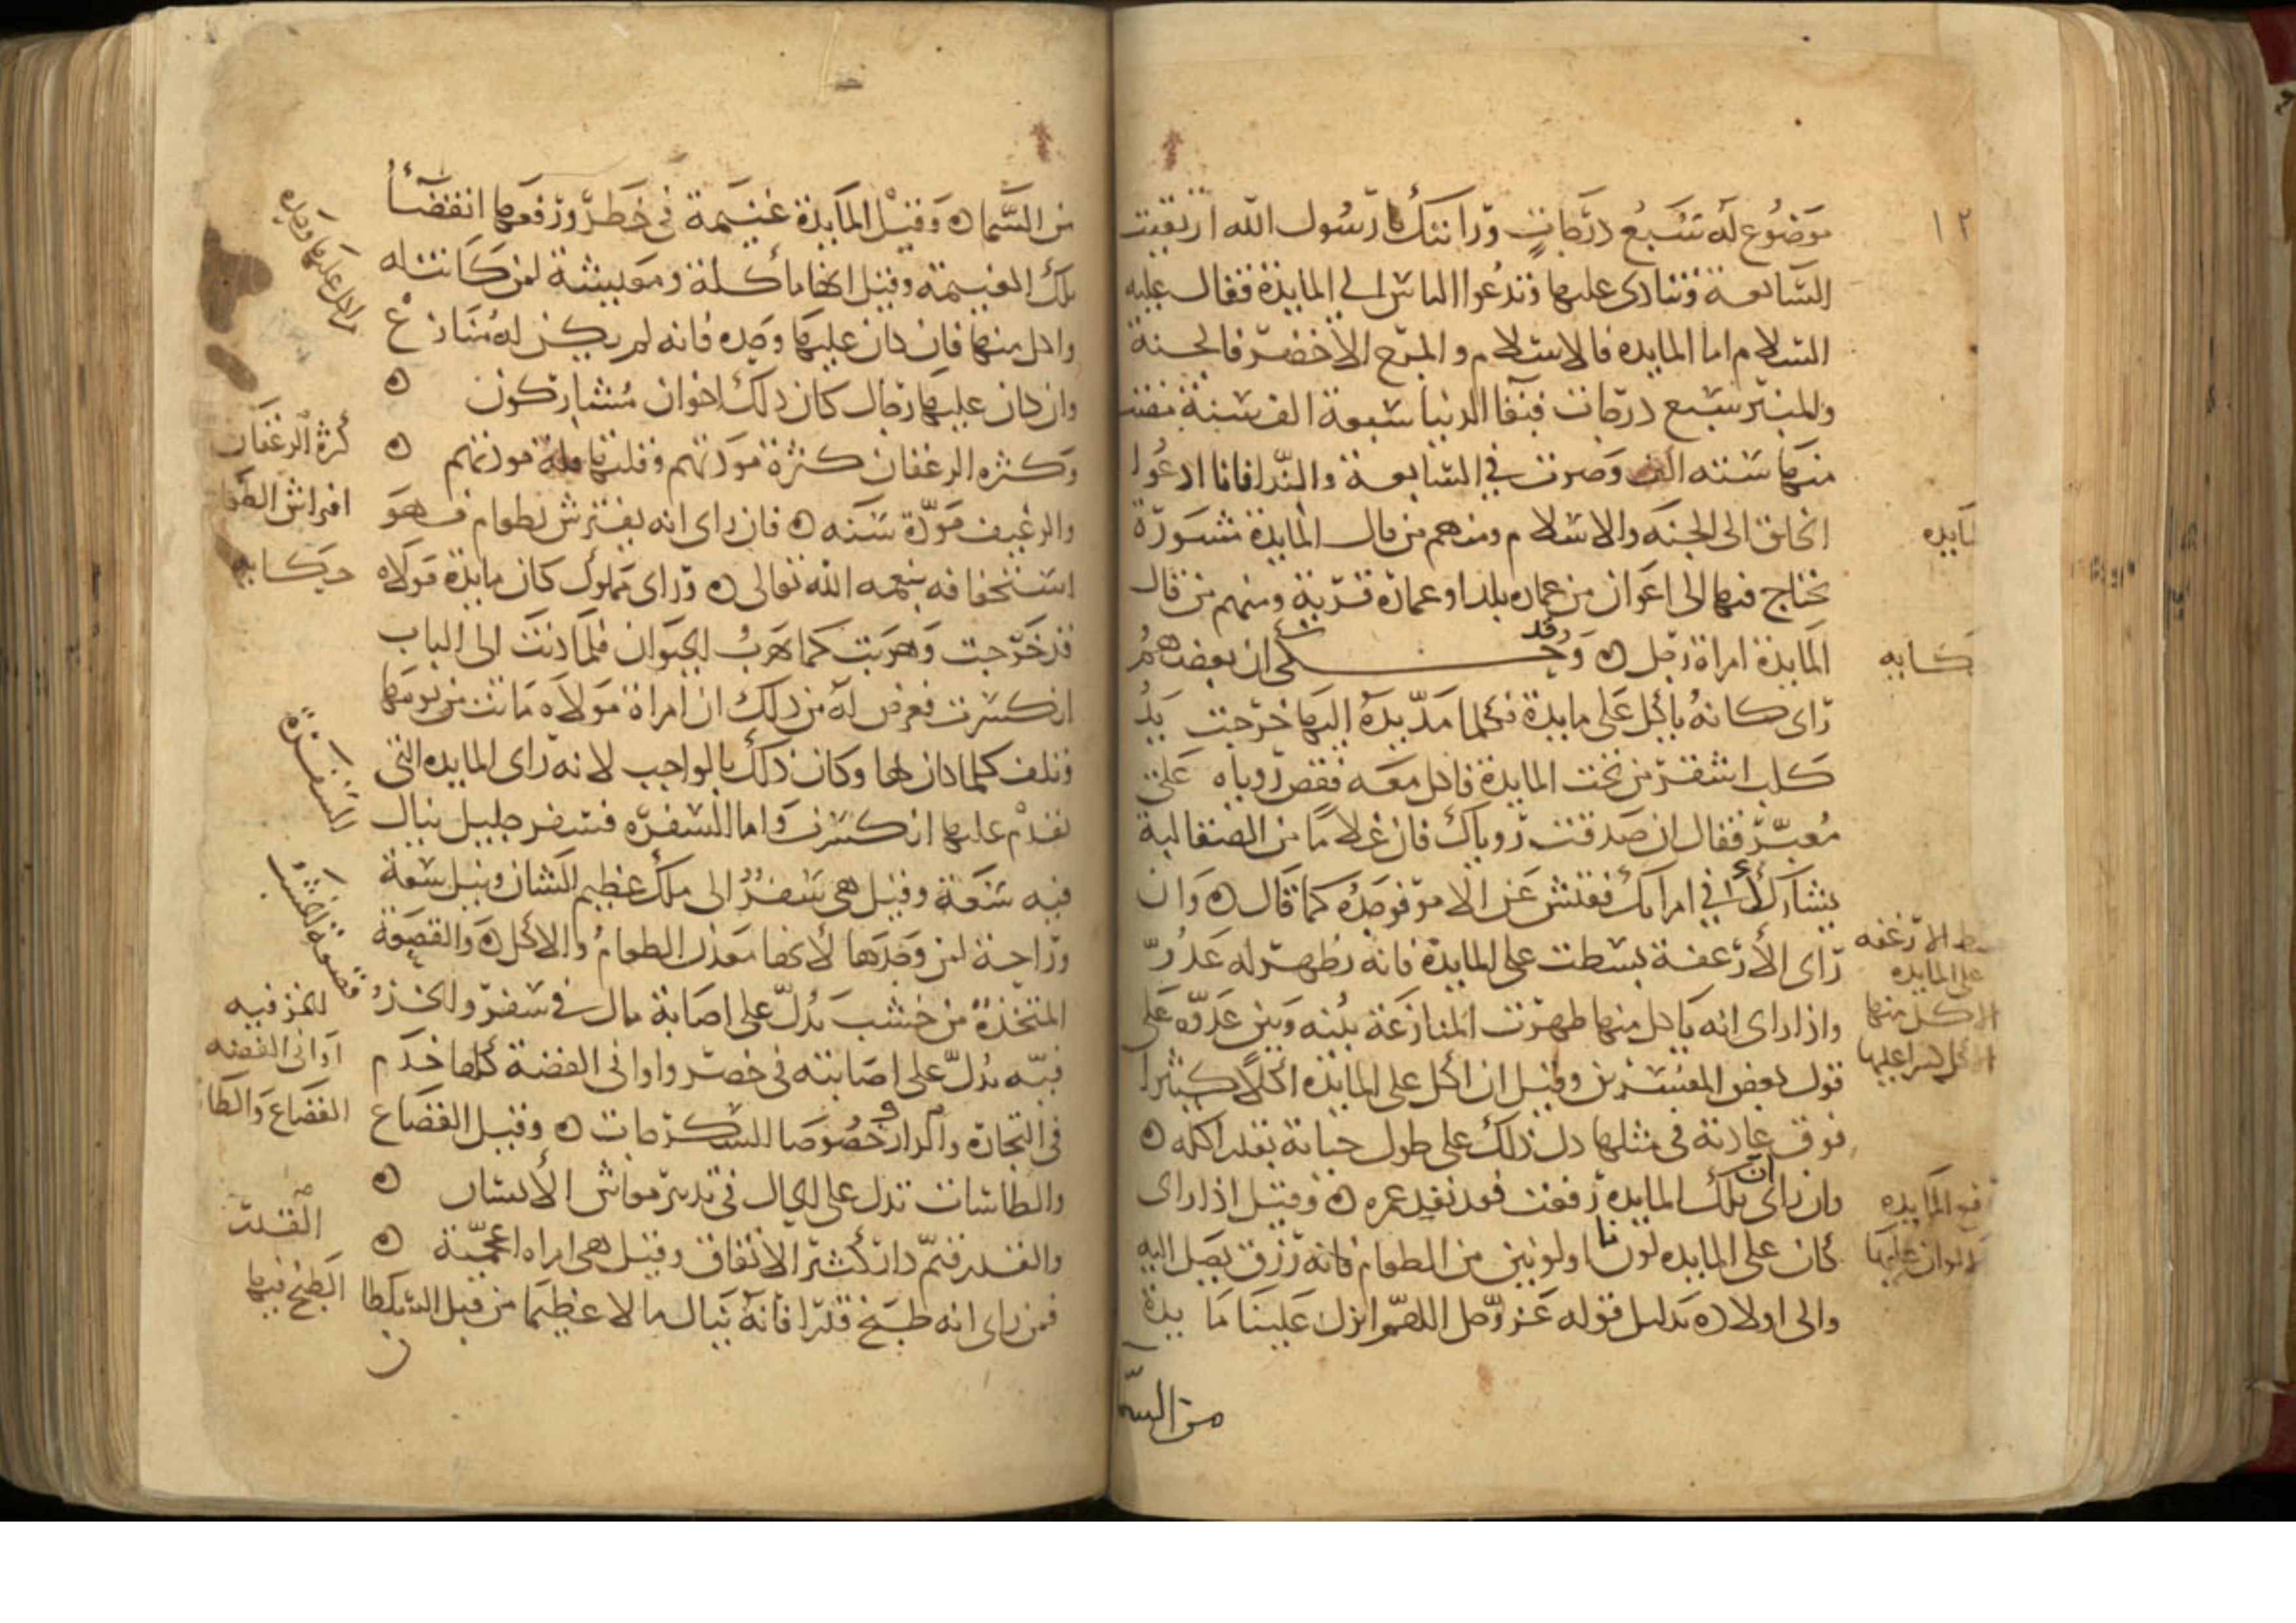 ١٢
موضوع له سبع درجات ورانتك يا رسول الله ارتقيت
السابعة وتنادى عليها وتدعوا الناس الى المايدة فقال عليه
السلام اما المايده فالاسلام والمرج الاخضر فالجنة
والمنبر سبع درجات فبقا الدنيا سبعة الف سنة مضت
منها سته الف وصرت في السابعة والندا فانا ادعوا
الخلق الى الجنه والاسلام ومنهم من قال المايدة مشورة
تحتاج فيها الى اعوان من عماره بلد او عمارة قرية ومنهم من قال
المايدة امراة رجل ه وقد حكى ان بعضهم
راى كانه ياكل على مايدة فكلما مد يده اليها خرجت يد
كلب اشقر من تحت المايدة فاكل معه فقص روياه على
معبر فقال ان صدقت روياك فان غلاما من الصقالبة
يشاركك في امراتك ففتش عن الامر فوجده كما قال ه وان
راى الارغفة بسطت على المايدة فانه يظهر له عدو
واذا راى انه ياكل منها ظهرت المنازعة بينه وبين عدوه على
قول بعض المفسرين وقيل ان اكل على المايده اكلا كثيرا
فوق عادته في مثلها دل ذلك على طول حياته بقدر اكله ه
وان راى ان تلك المايدة رفعت فقد نفد عمره ه وقيل اذا راى
كان على المايده لونا او لونين من الطعام فانه رزق يصل اليه
والى اولاده بدليل قوله عز وجل اللهم انزل علينا ما يدة
من السما
مايده
حكايه
بسط الارغفه
على المايده
الاكل منها
الاكل كثيرا عليها
رفع المايده
الالوان عليها
من السما ه وقيل المايدة غنيمة في خطر ورفعها انقضا
تلك الغنيمة وقيل انها ماكلة ومعيشة لمن كانت له
واكل منها فان كان عليها وحده فانه لم يكن له منازع
وان كان عليها رجال كان ذلك اخوان مشاركون ه
وكثره الرغفان كثرة مودتهم وقلتها قلة مودتهم ه
والرغيف مودة سنه ه فان راى انه يفترش بطعام فهو
استخفافه بنعمه الله تعالى ه وراى مملوك كان مايدة مولاه
قد خرجت وهربت كما هرب الحيوان فلما دنت الى الباب
انكسرت فعرض له من ذلك ان امراة مولاه ماتت من يومها
وتلف كلما كان لها وكان ذلك بالواجب لانه راى المايده التي
تقدم عليها انكسرت واما السفره فسفر جليل ينال
فيه سعة وقيل هي سفر الى ملك عظيم الشان ونيل سعة
وراحة لمن وجدها لانها معدن الطعام والاكل ه والقصعة
المتخذة من خشب يدل على اصابة مال في سفر والخزف
فيه يدل على اصابته في حضر واواني الفضة كلها خدم
في التجارة والدار خصوصا السكرجات ه وقيل القصاع
والطاسات تدل على الحال في تدبير معاش الانسان ه
والقدر قيم دار كثير الانفاق وقيل هي امراه اعجمية ه
فمن راى انه طبخ قدرا فانه ينال مالا عظيما من قبل السلطا
ن
الاكل عليها وحده
كثرة الرغفان
افراش الطعا
حكايه
السفرة
قصعة خشب
الخزفيه
اواني الفضه
القصاع والطا
القدر
الطبخ فيها